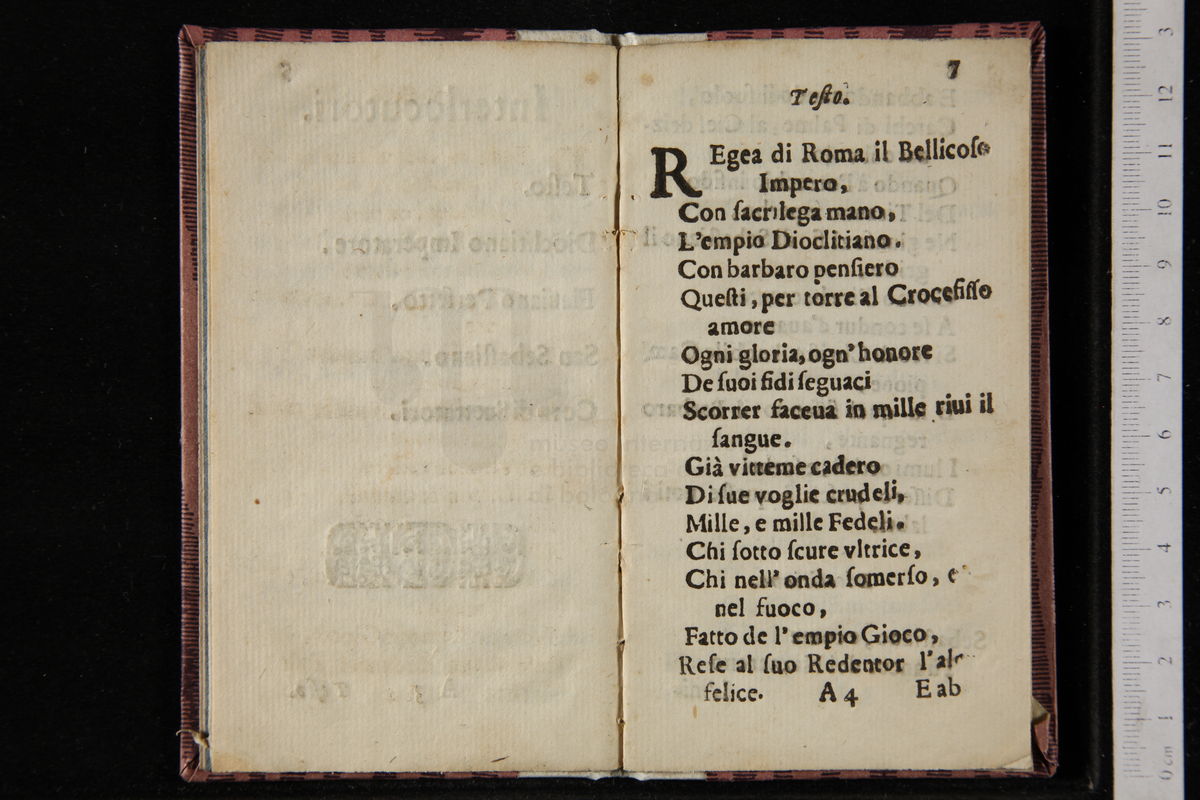 7
Teſto.
REgea di Roma il Bellicoſo
Impero,
Con ſacrilega mano,
L'empio Dioclitiano.
Con barbaro penſiero
Queſti, per torre al Crocefiſſo
amore
Ogni gloria, ogn'honore
De ſuoi fidi ſeguaci
Scorrer faceua in mille riui il
ſangue.
Già vitteme cadero
Di ſue voglie crudeli,
Mille, e mille Fedeli.
Chi ſotto ſcure vltrice,
Chi nell'onda ſomerſo, e
nel fuoco,
Fatto de l'empio Gioco,
Reſe al ſuo Redentor
felice. A 4 E ab